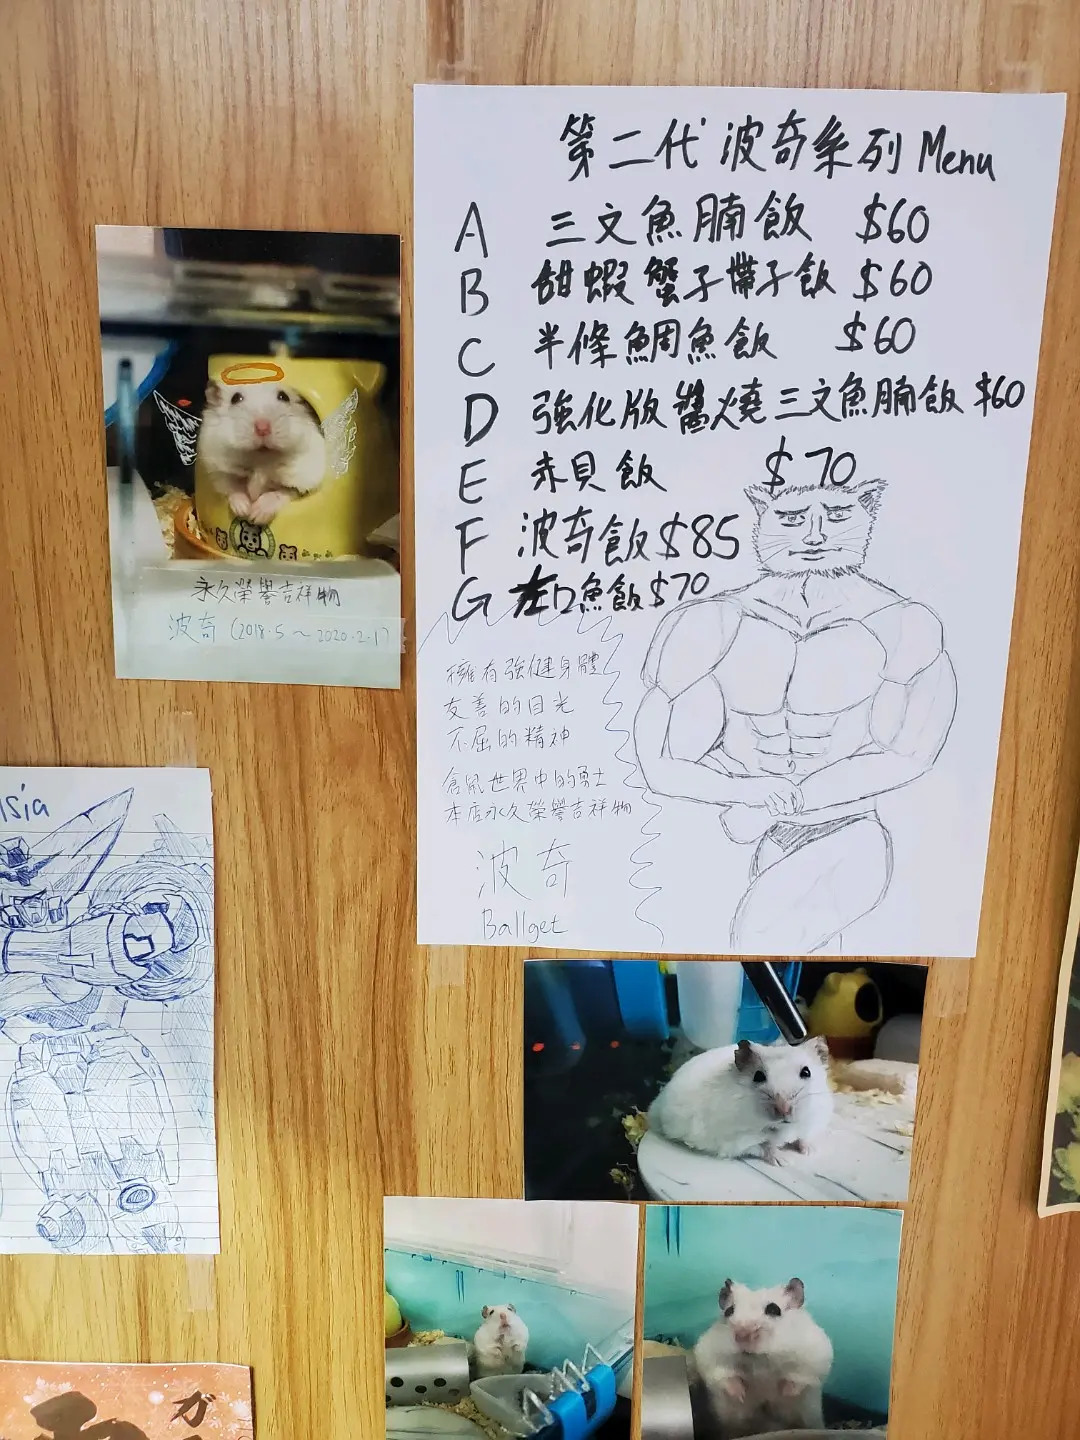 第二代波奇系列 Menu
A 三文魚腩飯 $60
B 甜蝦蟹子帶子飯 $60
C 半條鯛魚飯 $60
D 強化版醬燒三文魚腩飯 $60
E 赤貝飯 $70
F 波奇飯 $85
G 左口魚飯 $70
擁有強健身體
友善的目光
不屈的精神
倉鼠世界中的勇士
本店永久榮譽吉祥物
波奇
Ballget
永久榮譽吉祥物
波奇 (2018.5～2020.2.17)
sia
ガ